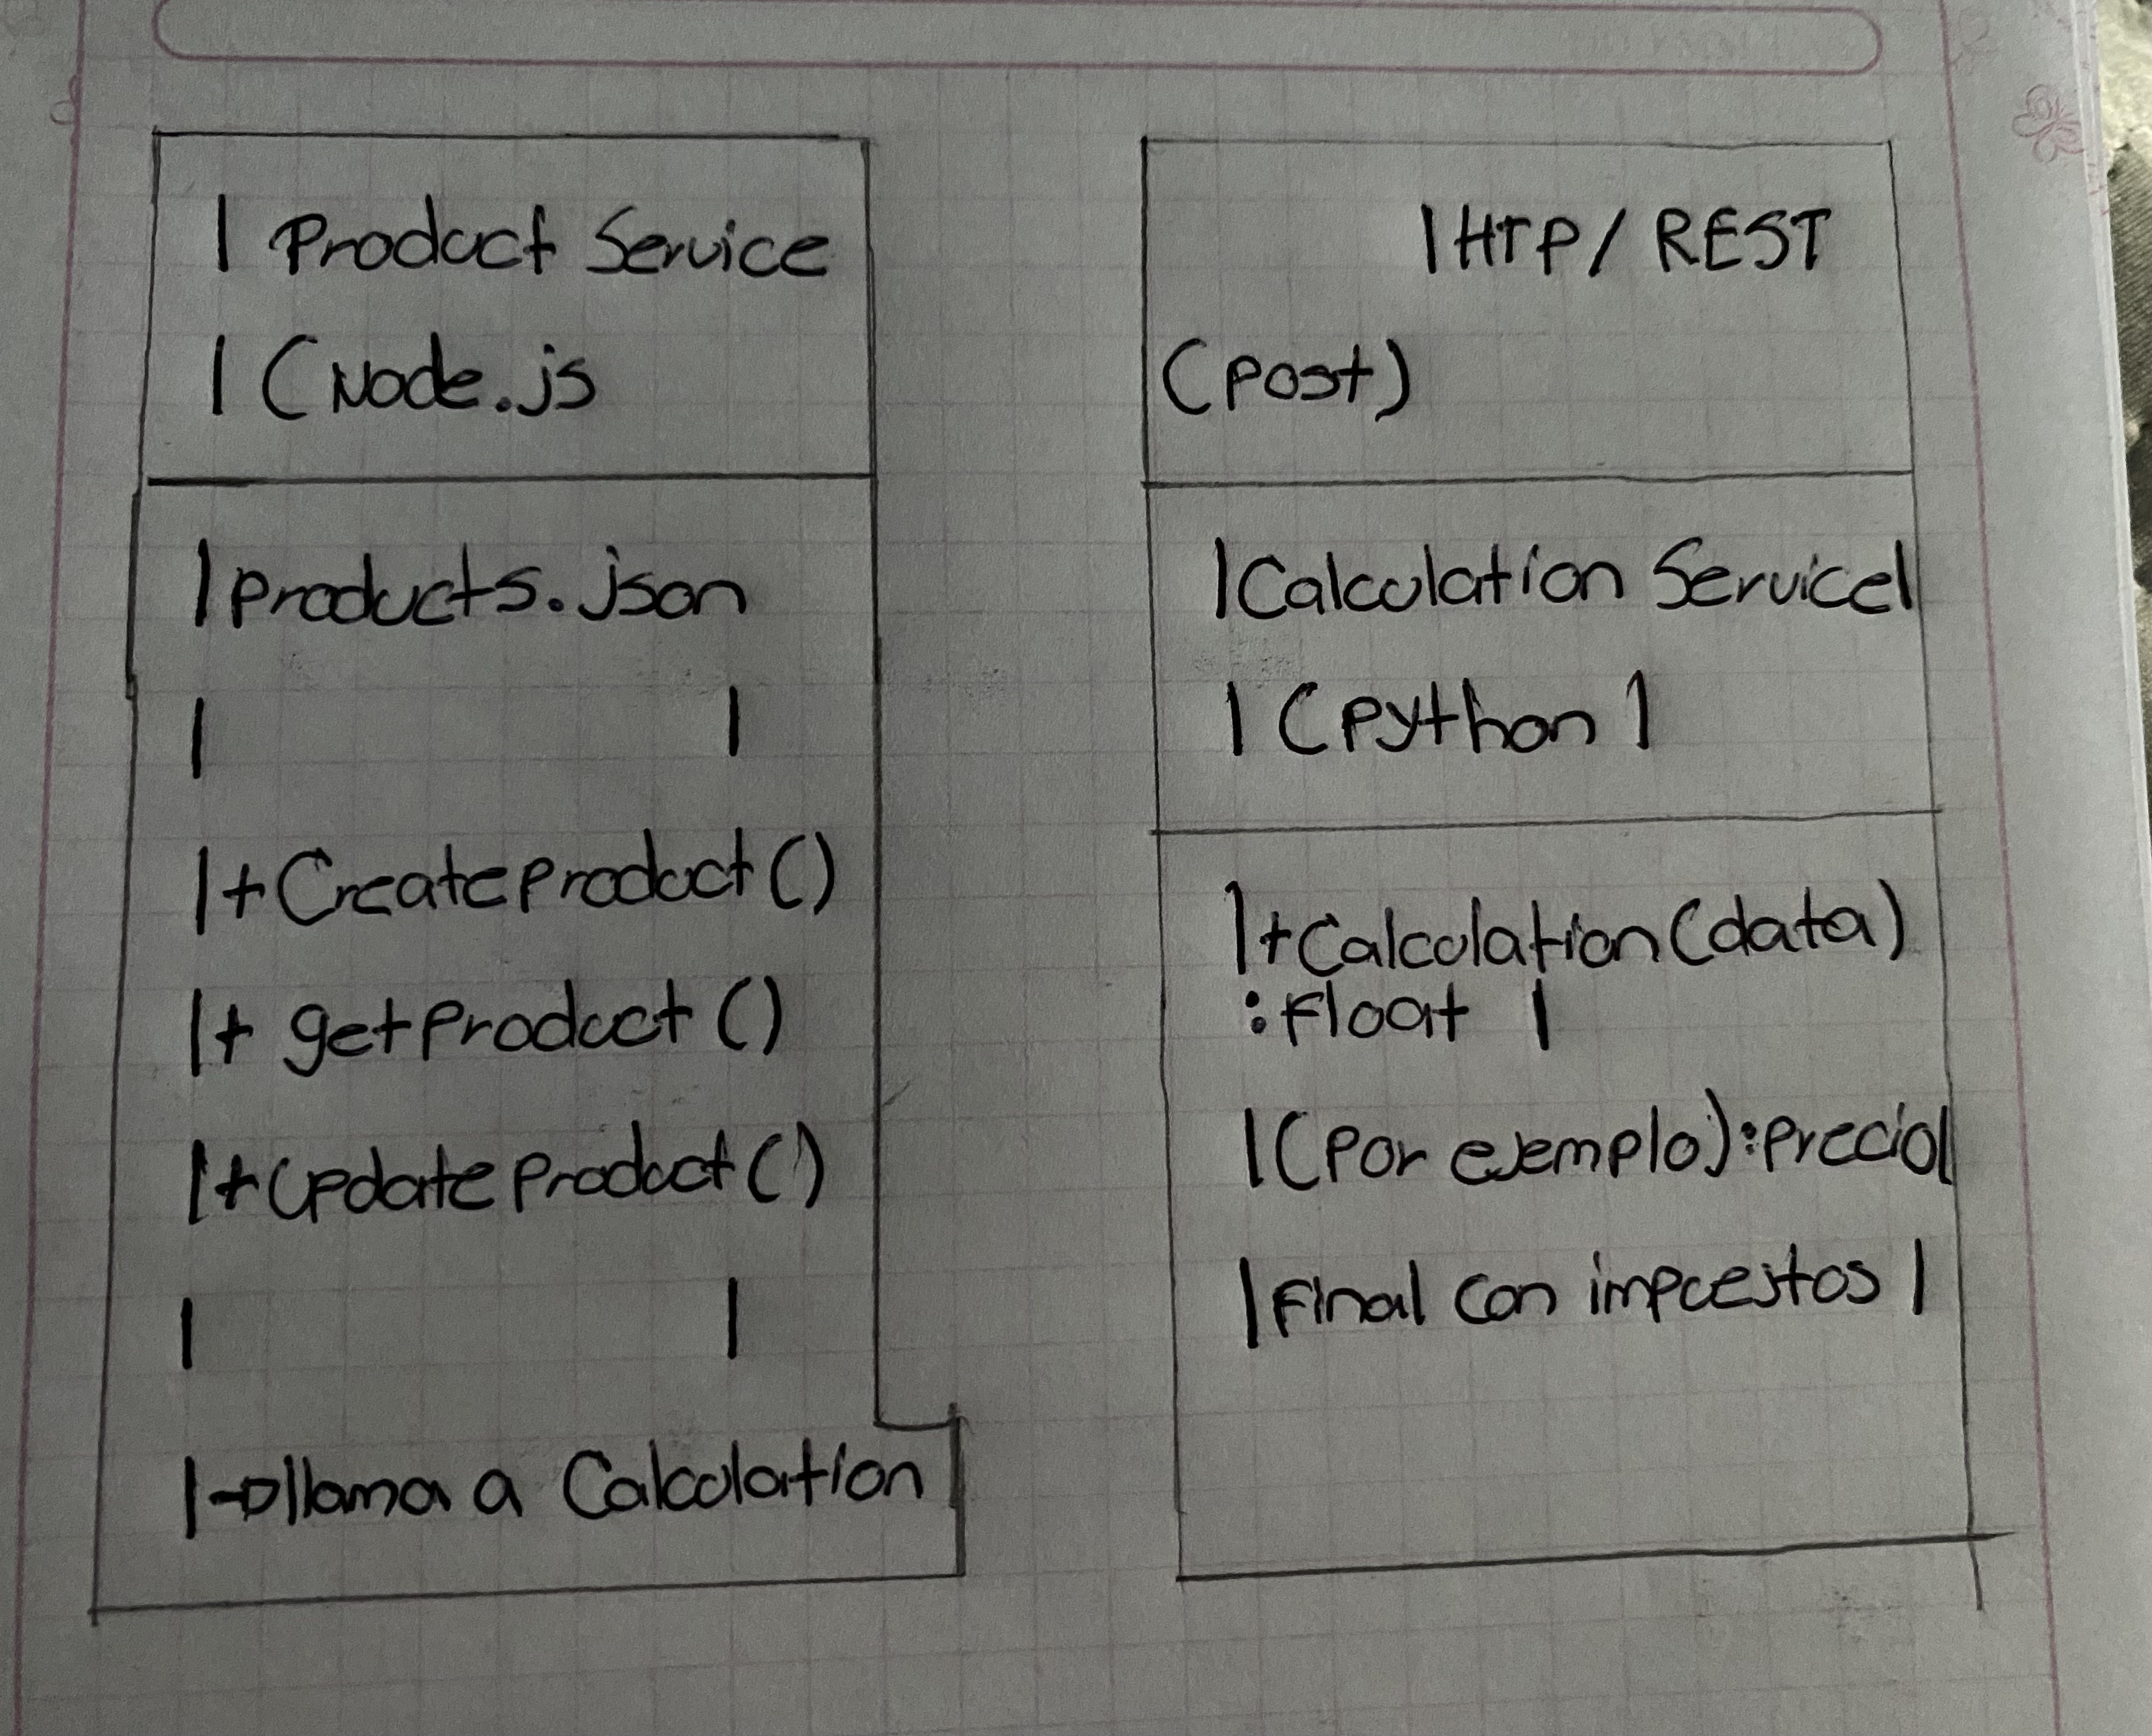 | Product Service
| (Node.js
| products.json
| |
|+Createproduct()
|+ getproduct()
|+Updateproduct()
| |
|→llama a Calculation|
|HTP/ REST
(post)
|Calculation Service|
| (python |
|+Calculation(data)
:Float |
|(Por ejemplo):Precio|
|Final con impuestos |